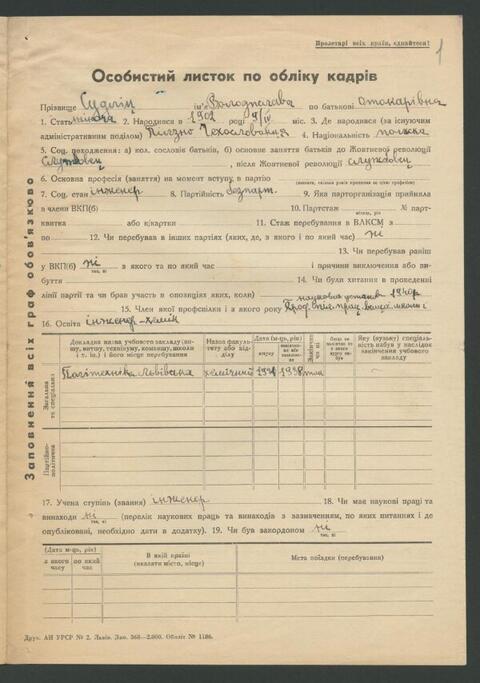 Пролетарі всіх країн, єднайтеся!
1
Особистий листок по обліку кадрів
Прізвище ім'я Володислава по батькові Отокарівна
1. Стать жіноча 2. Народився в 1902 році 9/IV міс. 3. Де народився (за існуючим
адміністративним поділом) Пільзно Чехословаччина 4. Національність полька
5. Соц. походження: а) кол. сословіє батьків, б) основне заняття батьків до Жовтневої революції
службовець, після Жовтневої революції службовець
6. Основна професія (заняття) на момент вступу в партію
7. Соц. стан інженер 8. Партійність безпарт. 9. Яка парторганізація прийняла
в члени ВКП(б) 10. Партстаж № парт-
місяць, рік
квитка або к/картки 11. Стаж перебування в ВЛКСМ з
по 12. Чи перебував в інших партіях (яких, де, з якого і по який час) ні
13. Чи перебував раніш
у ВКП(б) ні з якого та по який час і причини виключення або ви-
так, ні
буття 14. Чи були хитання в проведенні
лінії партії та чи брав участь в опозиціях яких, коли)
15. Член якої профспілки і з якого року Проф. спіл. прац. вищої школи і наукових установ 1940р
16. Освіта інженер-хемік
Докладна назва учбового закладу (ун-ту, інституту, технікуму, комвищу, школи і т. ін.) і його місце перебування
Назва факультету або відділу
Дата (м-ць, рік)
вступу
Яку (вузьку) спеціальність набув у наслідок закінчення учбового закладу
Загальна та спеціальна
Політехніка Львівська хемічний 1938 так
Партійно-політична
Заповнення всіх граф обов'язково
17. Учена ступінь (звання) інженер 18. Чи має наукові праці та
винаходи ні (перелік наукових праць та винаходів з зазначенням, по яких питаннях і де
так, ні
опубліковані, необхідно дати в додатку). 19. Чи був закордоном ні
так, ні
Дата (м-ць, рік)
з якого часу
по який час
В якій країні (вказати місто, місце)
Мета поїздки (перебування)
Друк. АН УРСР № 2. Львів. Зам. 368—2.000. Обліт № 1186.